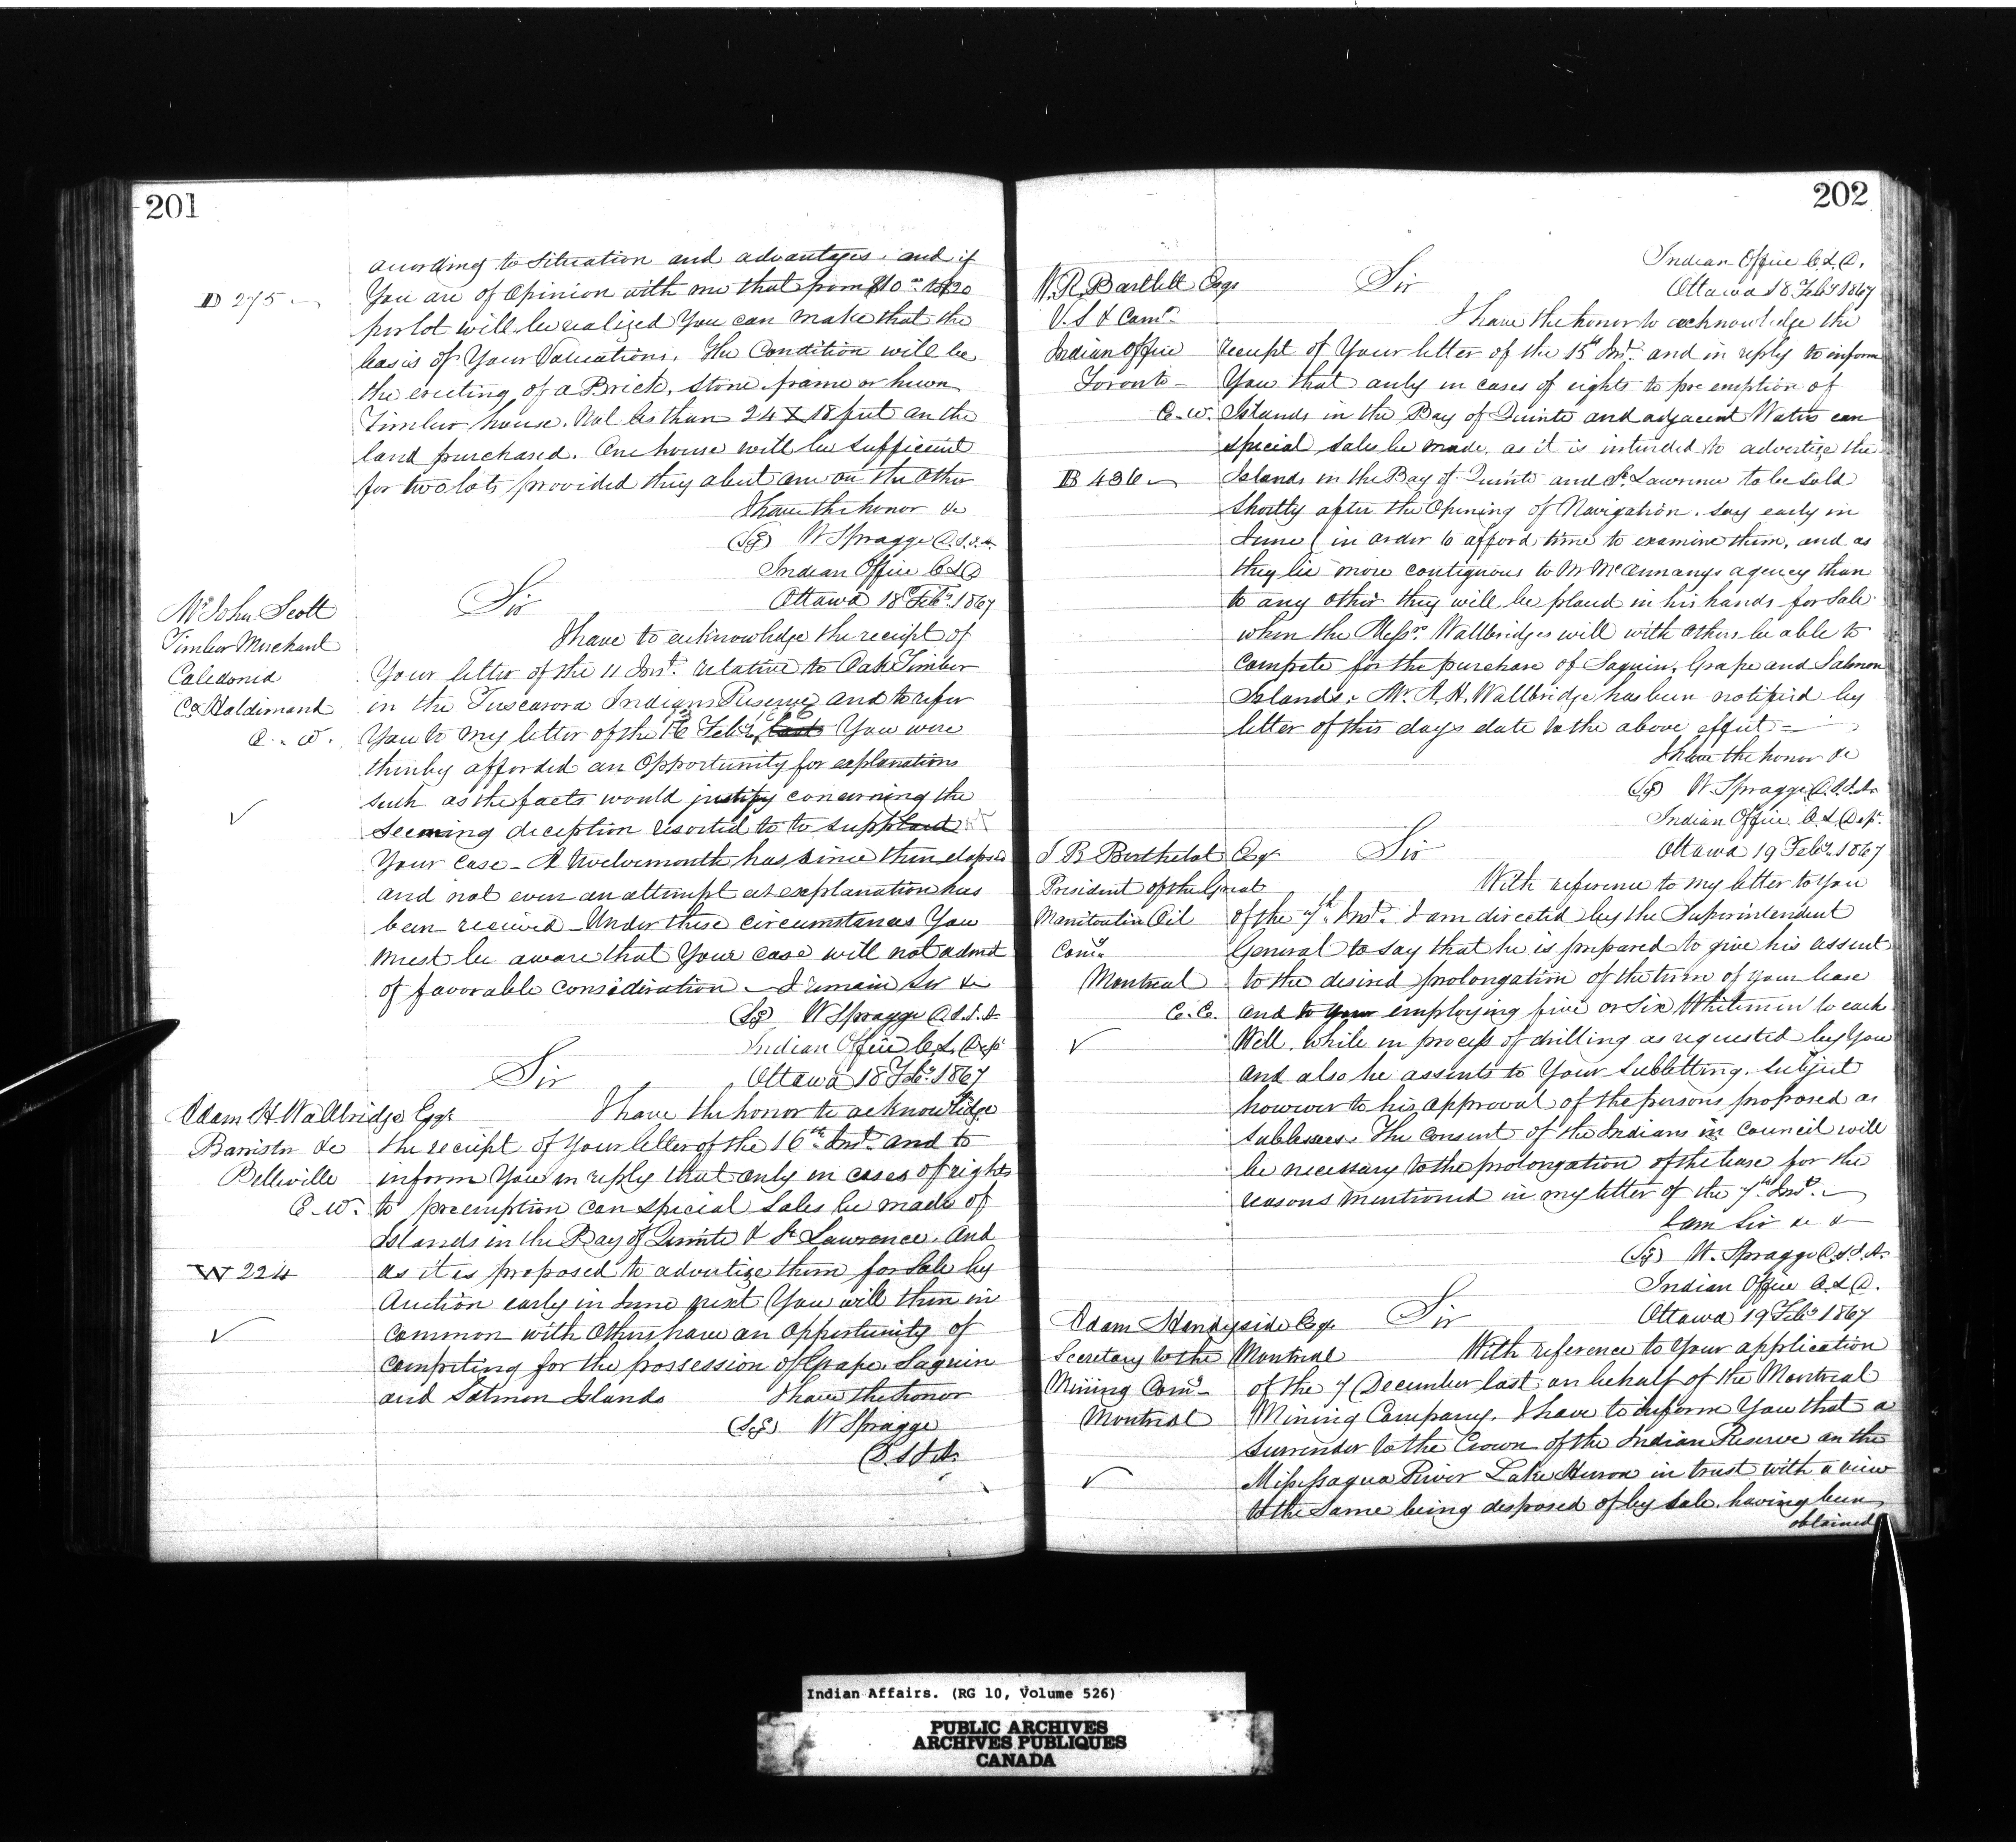 201
according to situation and advantages, and if
D 275
You are of Opinion with me that from $10 00 to $20
per lot will be realized You can make that the
basis of Your Valuations. The Condition will be
the erecting of a Brick, stone frame or hewn
Timber house. Not less than 24 X 18 feet on the
land purchased. One house will be sufficient
for two lots provided they abut one on the other
I have the honor &c
(Sg) W Spragge D.S.I.A.
Indian Office C L D
Ottawa 18 Feby. 1867
Mr John Scott
Timber Merchant
Caledonia
Co Haldimand
C. W.
Sir
I have to acknowledge the receipt of
Your letter of the 11 Inst. relative to Oak Timber
in the Tuscarora Indians Reserve and to refer
You to my letter of the 16 Feby, last You were
thereby afforded an Opportunity for explanations
such as the facts would justify concerning the
seeming deception resorted to to support
Your case - A twelvemonth has since then elapsed
and not even an attempt at explanation has
been received - Under these circumstances You
must be aware that Your case will not admit
of favorable consideration - I remain Sir &c
(Sg) W Spragge D.S.I.A.
Indian Office C.L. Dept
Ottawa 18 Feby. 1867
Sir
Adam H. Wallbridge Esqr.
Barrister &c
Belleville
C. W.
I have the honor to acknowledge
the receipt of Your letter of the 16th. Inst. and to
inform You in reply that only in cases of rights
to preemption can special Sales be made of
Islands in the Bay of Quinte & St Lawrence. And
W 224
as it is proposed to advertize them for Sale by
Auction early in June next You will then in
common with Others have an Opportunity of
competing for the possession of Grape. Saguin
and Salmon Islands I have the honor
(Sg) W Spragge
D.S.I.A.
202
Indian Office C.L.D.
Ottawa 18 Feby 1867
W. R. Bartlett Esqr
V.S & Comr.
Indian Office
Toronto
C. W.
Sir
I have the honor to acknowledge the
receipt of Your letter of the 15th Inst. and in reply to inform
You that only in cases of rights to pre emption of
Islands in the Bay of Quinte and adjacent Waters can
special sales be made, as it is intended to advertize the
B 436
Islands in the Bay of Quinte and St. Lawrence to be sold
Shortly after the Opening of Navigation. say early in
June (in order to afford time to examine them, and as
they lie more contiguous to Mr McAnnanys agency than
to any other they will be placed in his hands for Sale
when the Messrs. Wallbridges will with others be able to
compete for the purchase of Saguin, Grape and Salmon
Islands. Mr. A. H. Wallbridge has been notified by
letter of this days date to the above effect
I have the honor &c
(Sg) W. Spragge, D.S.I.A.
Indian Office C. L. Dept.
Ottawa 19 Feby. 1867
J B Berthelot Esqr
President of the Great
Manitoulin Oil
Comy.
Montreal
C. E.
Sir
With reference to my letter to You
of the 7th. Inst. I am directed by the Superintendent
General to say that he is prepared to give his assent
to the desired prolongation of the term of your lease
and to your employing five or six Whitemen to each
Well. While in process of drilling as requested by You
and also he assents to Your Subletting. Subject
however to his approval of the persons proposed as
Sublessees. The consent of the Indians in Council will
be necessary to the prolongation of the lease for the
reasons mentioned in my letter of the 7th Inst.
I am Sir &c &
(Sg) W. Spragge D.S.I.A.
Indian Office C.L.D.
Ottawa 19 Feby 1867
Adam Handyside Esqr.
Secretary to the Montreal
Mining Comy
Montreal
Sir
With reference to Your application
of the 7 December last, on behalf of the Montreal
Mining Company. I have to inform You that a
Surrender to the Crown of the Indian Reserve on the
Missessagua River Lake Huron in trust with a view
to the Same being disposed of by sale, having been
obtained
Indian Affairs. (RG 10, Volume 526)
PUBLIC ARCHIVES
ARCHIVES PUBLIQUES
CANADA